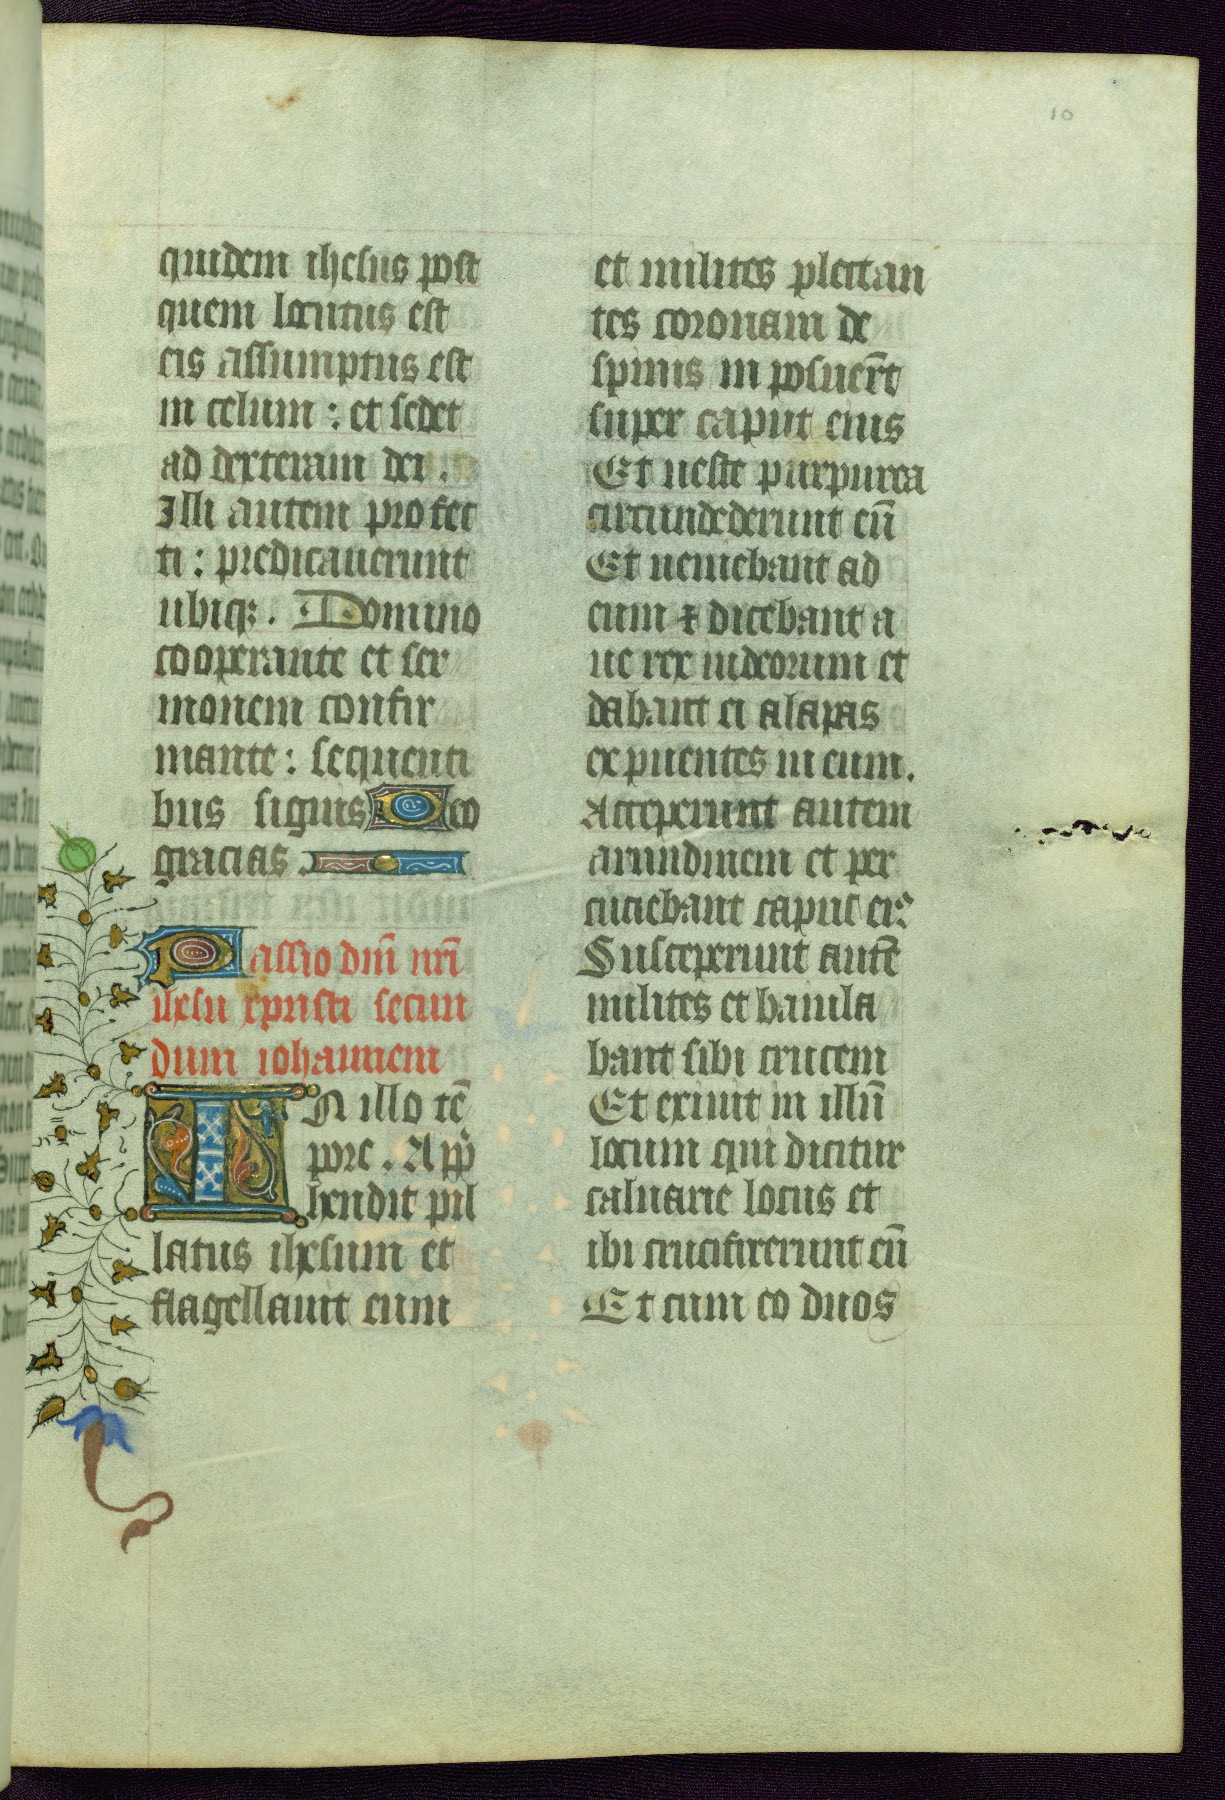 10
quidem ihesus post
quem locutus est
eis assumptus est
in celum : et sedet
ad dexteram dei .
Illi autem profec
ti : predicauerunt
ubiqꝫ . Domino
cooperante et ser
monem confir
mante : sequenti
bus signis Deo
gracias .
Passio dnī nrī
ihesu xpristi secun
dum iohannem
IN illo tē
pore . App̄
hendit pil
latus ihesum et
flagellauit eum
et milites plectan
tes coronam de
spinis in posuer̄t
super caput eius
Et ueste purpurea
circundederunt eū
Et ueniebant ad
eum ⁊ dicebant a
ue rex iudeorum et
dabant ei alapas
expuentes in eum.
Acceperunt autem
arundinem et per
cuciebant caput eiꝰ
Susceperunt autē
milites et baiula
bant sibi crucem
Et exiuit in illū
locum qui dicitur
caluarie locus et
ibi crucifixerunt eū
Et cum eo duos